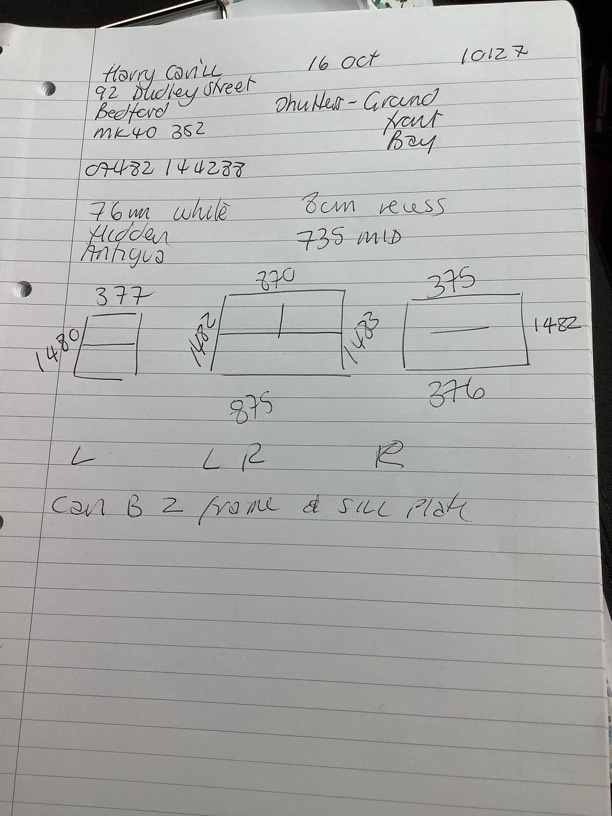 Harry Cavill
16 Oct
10127
92 Dudley Street
Bedford
MK40
Shutters - Grand
front
Bay
07482 144288
76mm white
8cm recess
Hidden
735 MID
Antigua
377
1480
870
1482
1483
875
375
1482
376
L
L R
R
Can B Z frame & Sill Plate